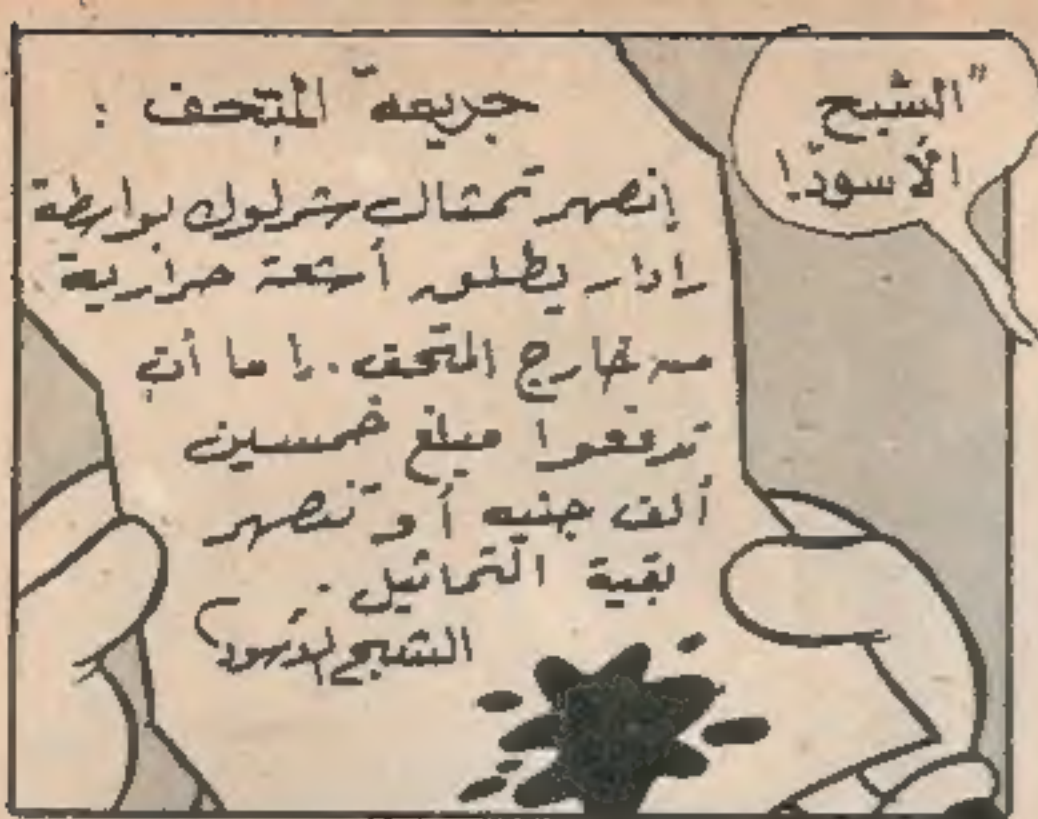 "الشبح
الأسود"!
جريمة المتحف :
إنصهر تمثال شرلوك بواسطة
رادار يطلق أشعة حرارية
من خارج المتحف . إما أن
تدفعوا مبلغ خمسين
ألف جنيه أو تنصهر
بقية التماثيل .
الشبح الأسود